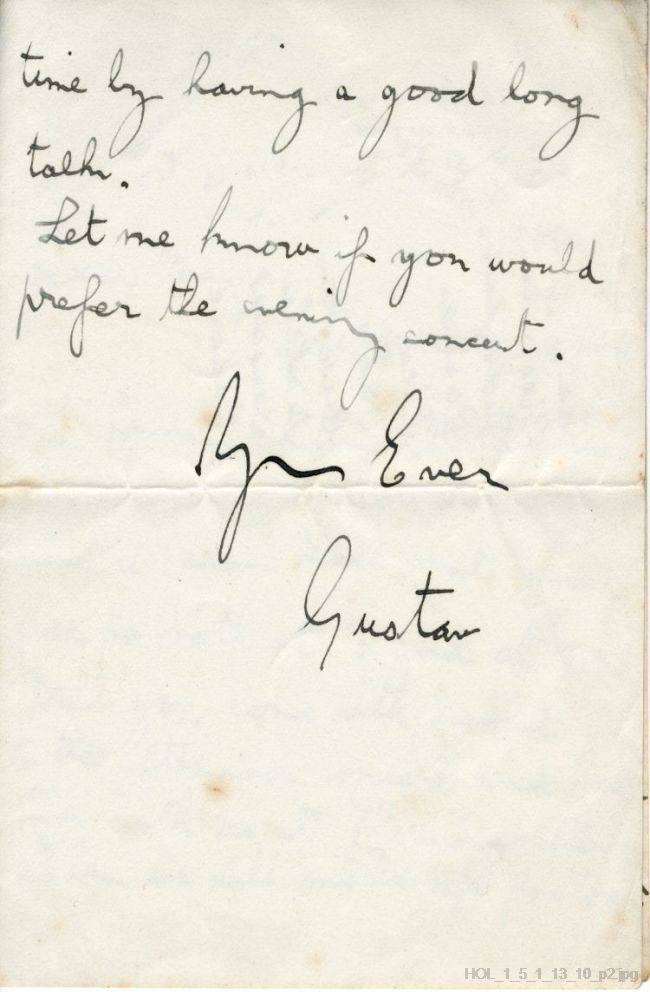 time by having a good long
talk.
Let me know if you would
prefer the evening concert.
Yrs Ever
Gustav
HOL_1_5_1_13_10_p2.jpg